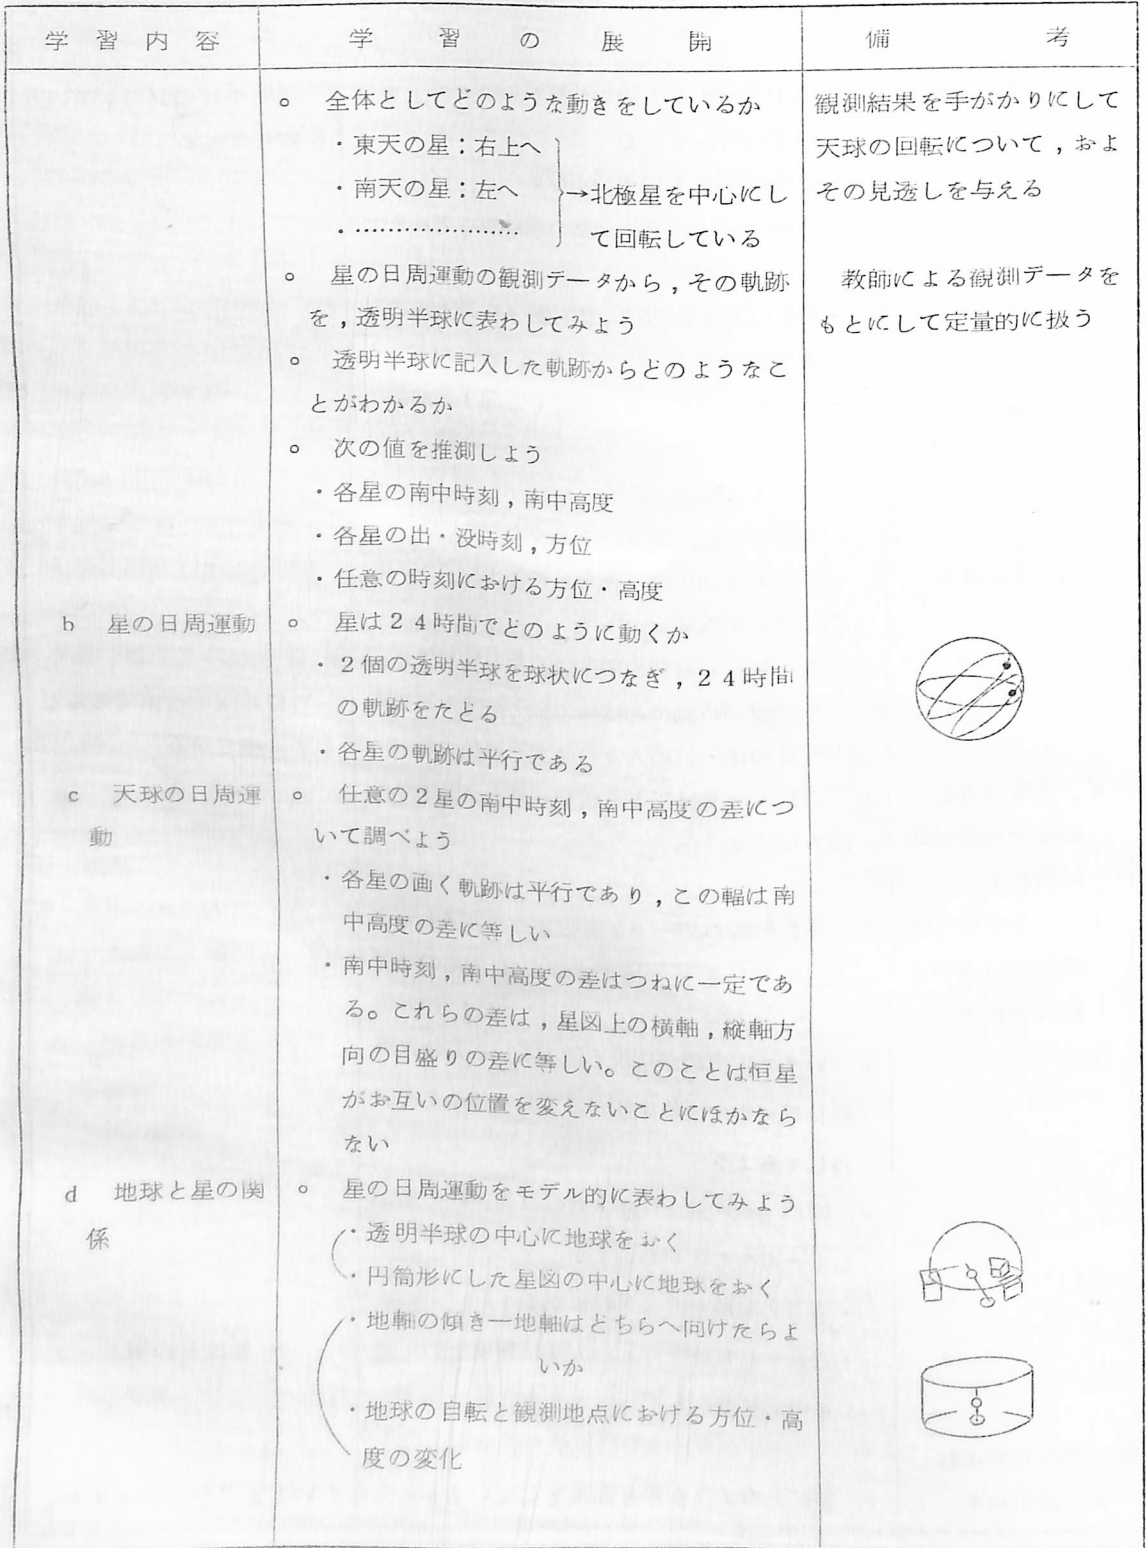 学習内容
学習の展開
備考
○ 全体としてどのような動きをしているか
・東天の星：右上へ
・南天の星：左へ →北極星を中心にし
・………………… て回転している
○ 星の日周運動の観測データから，その軌跡
を，透明半球に表わしてみよう
○ 透明半球に記入した軌跡からどのようなこ
とがわかるか
○ 次の値を推測しよう
・各星の南中時刻，南中高度
・各星の出・没時刻，方位
・任意の時刻における方位・高度
観測結果を手がかりにして
天球の回転について，およ
その見透しを与える
教師による観測データを
もとにして定量的に扱う
b 星の日周運動
○ 星は24時間でどのように動くか
・2個の透明半球を球状につなぎ，24時間
の軌跡をたどる
・各星の軌跡は平行である
c 天球の日周運
動
○ 任意の2星の南中時刻，南中高度の差につ
いて調べよう
・各星の画く軌跡は平行であり，この幅は南
中高度の差に等しい
・南中時刻，南中高度の差はつねに一定であ
る。これらの差は，星図上の横軸，縦軸方
向の目盛りの差に等しい。このことは恒星
がお互いの位置を変えないことにほかなら
ない
d 地球と星の関
係
○ 星の日周運動をモデル的に表わしてみよう
・透明半球の中心に地球をおく
・円筒形にした星図の中心に地球をおく
・地軸の傾き―地軸はどちらへ向けたらよ
いか
・地球の自転と観測地点における方位・高
度の変化